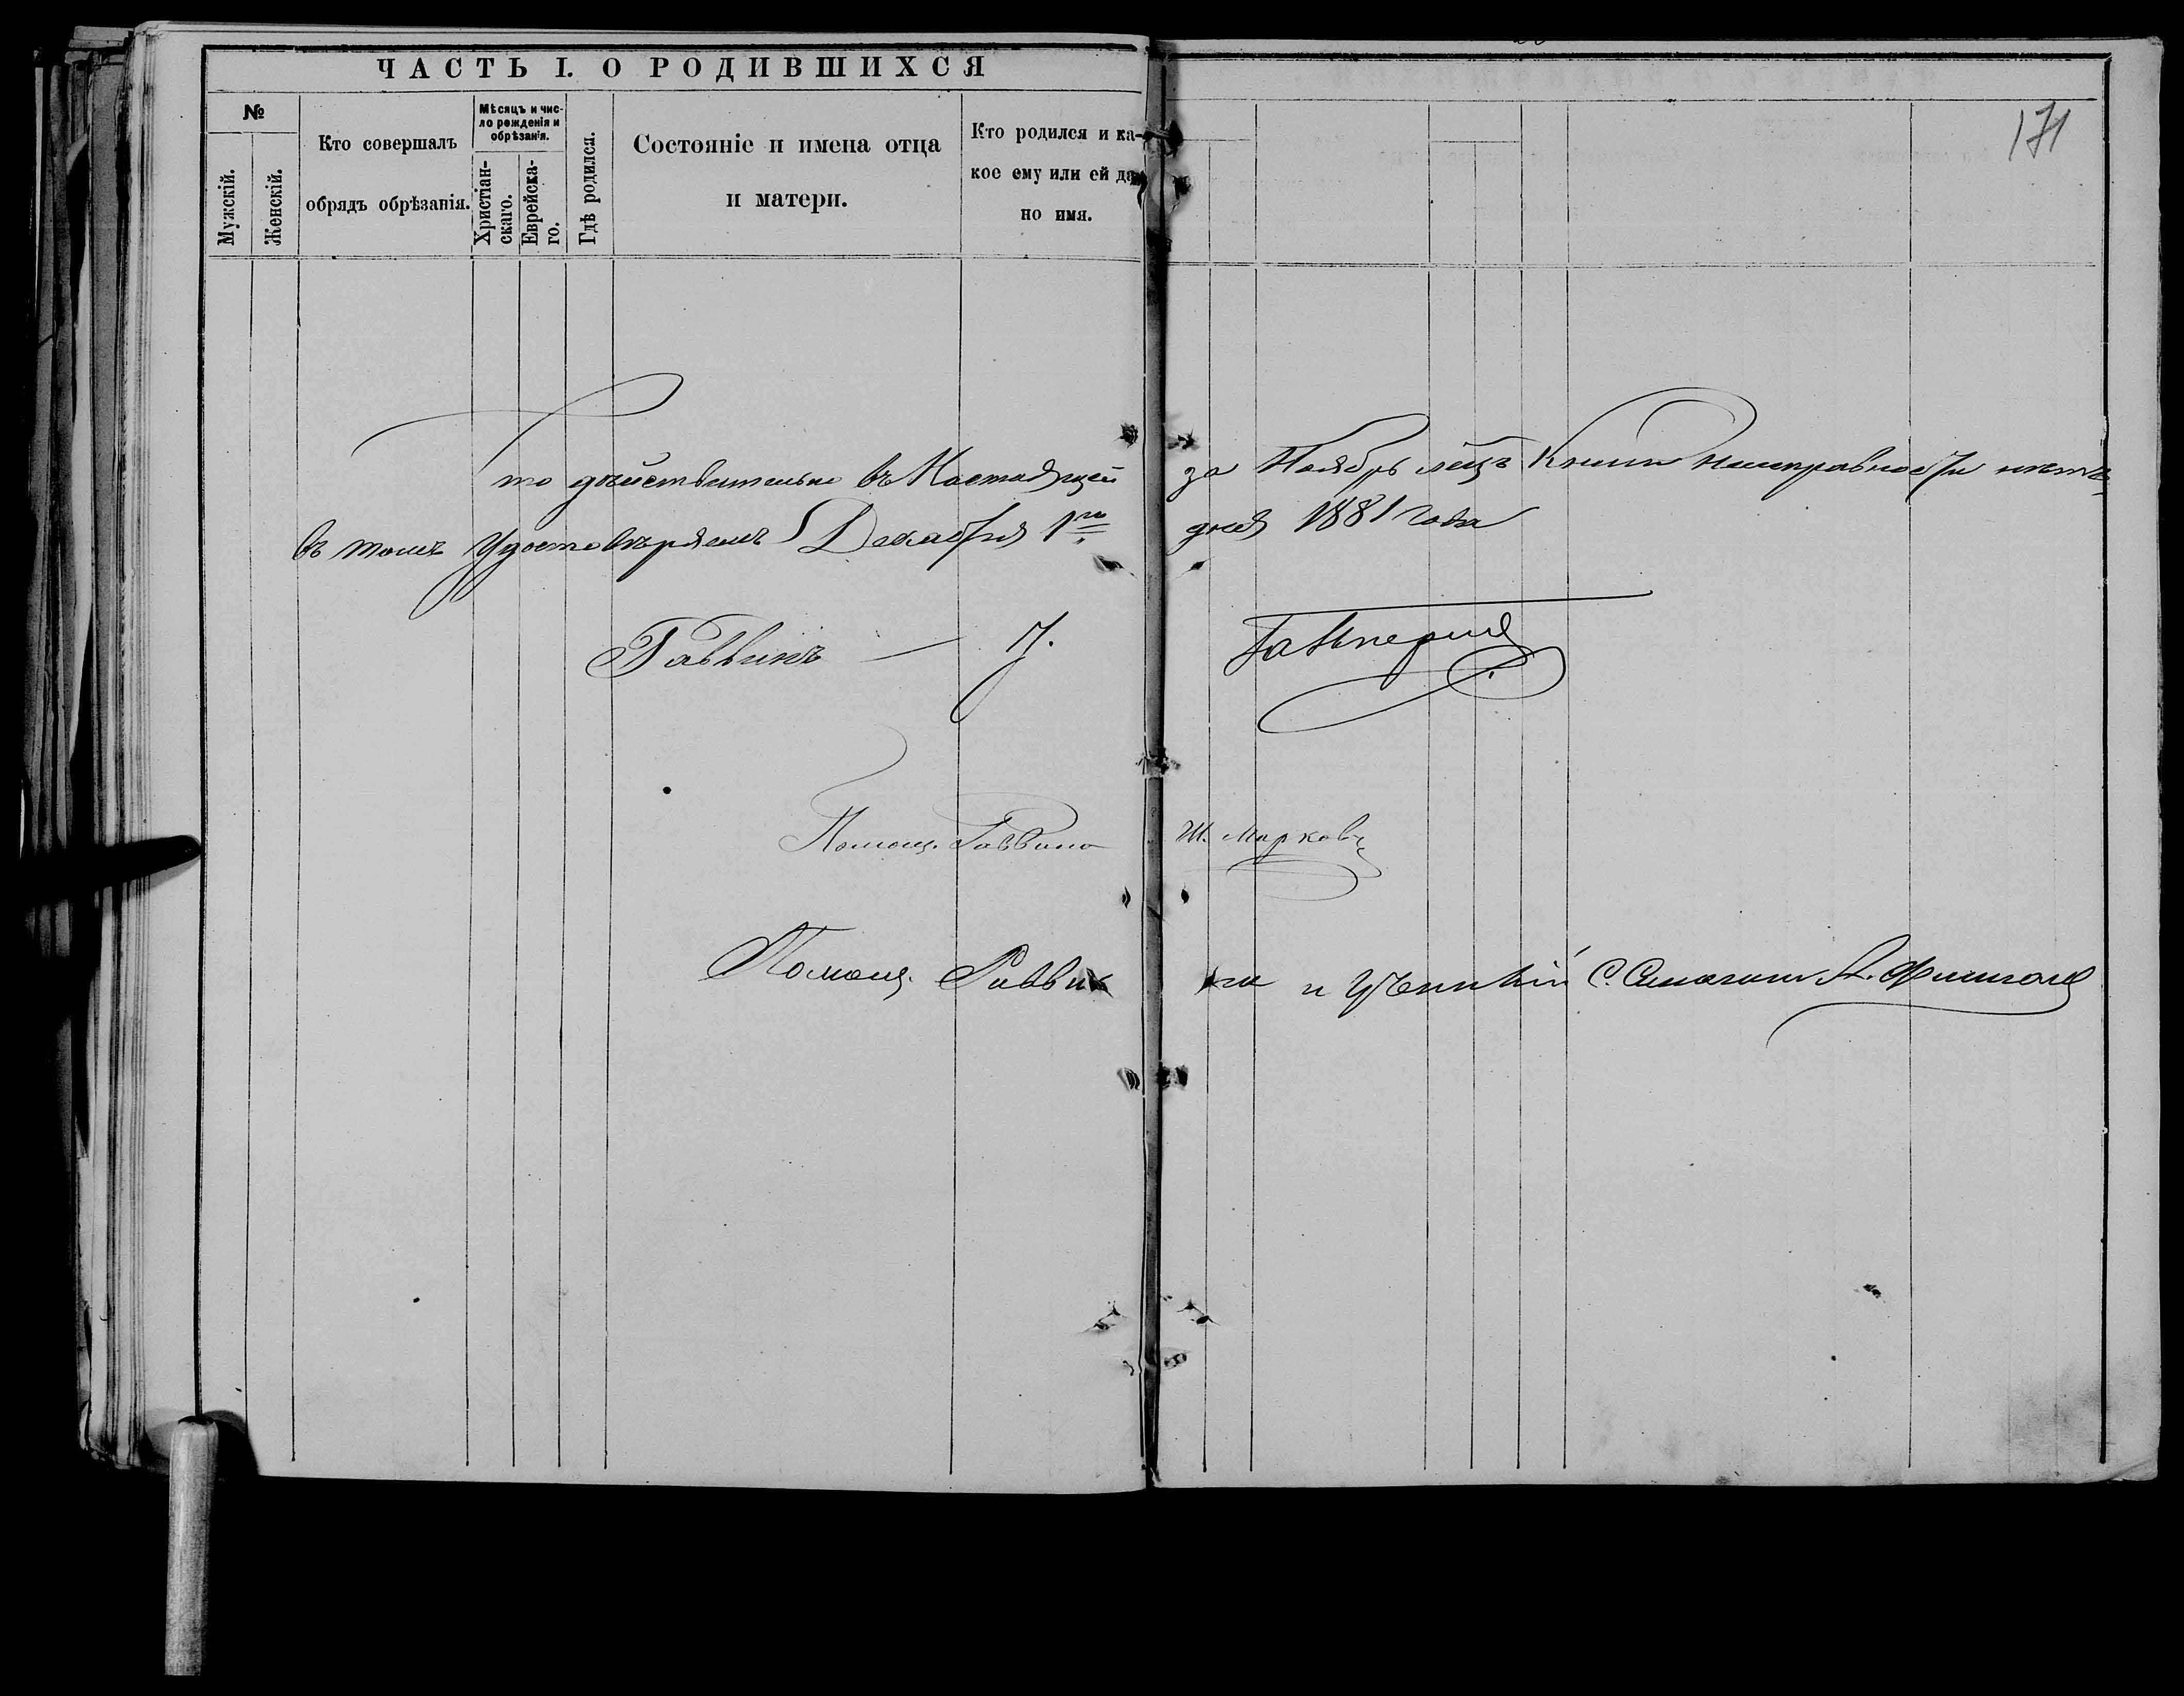 ЧАСТЬ I. О РОДИВШИХСЯ
171
№
Мужскій.
Женскій.
Кто совершалъ
обрядъ обрѣзанія.
Мѣсяцъ и чис-
ло рожденія и
обрѣзанія.
Христіан-
скаго.
Еврейска-
го.
Гдѣ родился.
Состояніе и имена отца
и матери.
Кто родился и ка-
кое ему или ей да
но имя.
что дѣйствительно въ Настоящей за Ноябрь мѣцъ Книги Неисправности нѣтъ
въ томъ Удостовѣряемъ Декабря 1го дня 1881 года
Раввинъ
Помощ. Раввина Ш. Марковъ
Помощ. Раввина и